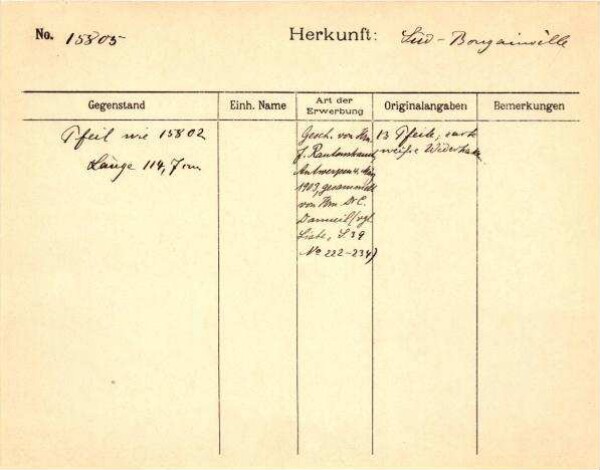 No. 15805 Herkunft: Süd-Bougainville
Gegenstand Einh. Name Art der Erwerbung Originalangaben Bemerkungen
Pfeil wie 15802
Länge 114,7 cm
Gesch. von Hrn.
J.
Antwerpen
1903, gesammelt
von Hrn Dr C.
(vgl.
Liste, S. 39
No 222-234)
13 Pfeile,
weisse Widerhaken